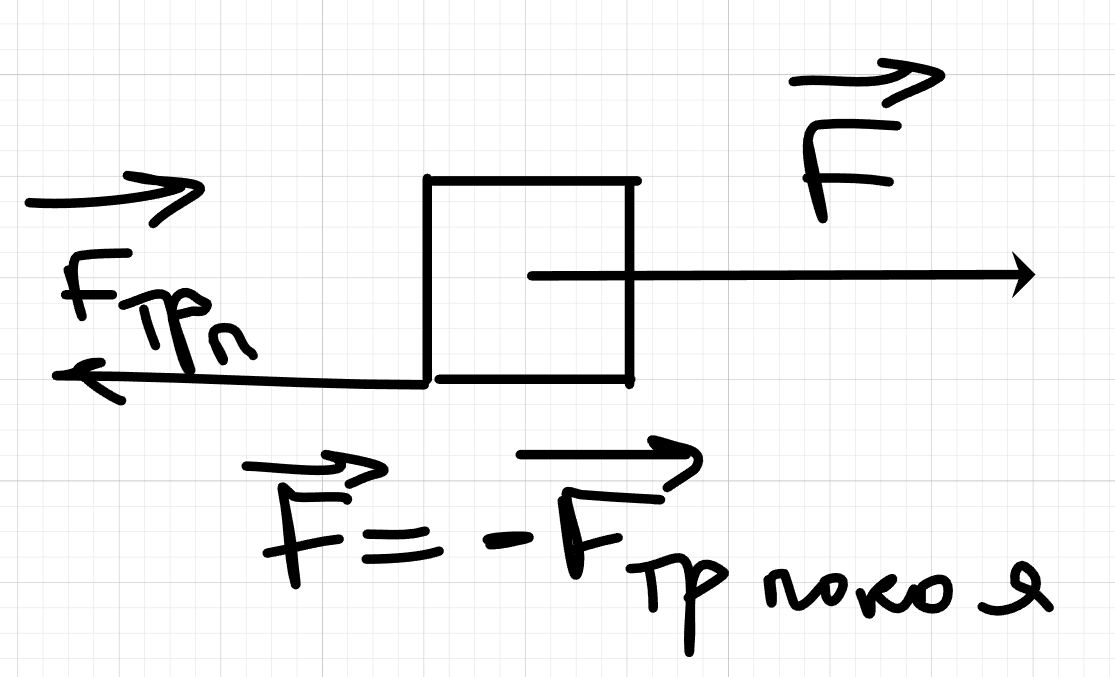 F
Fтрп
F = -Fтр покоя